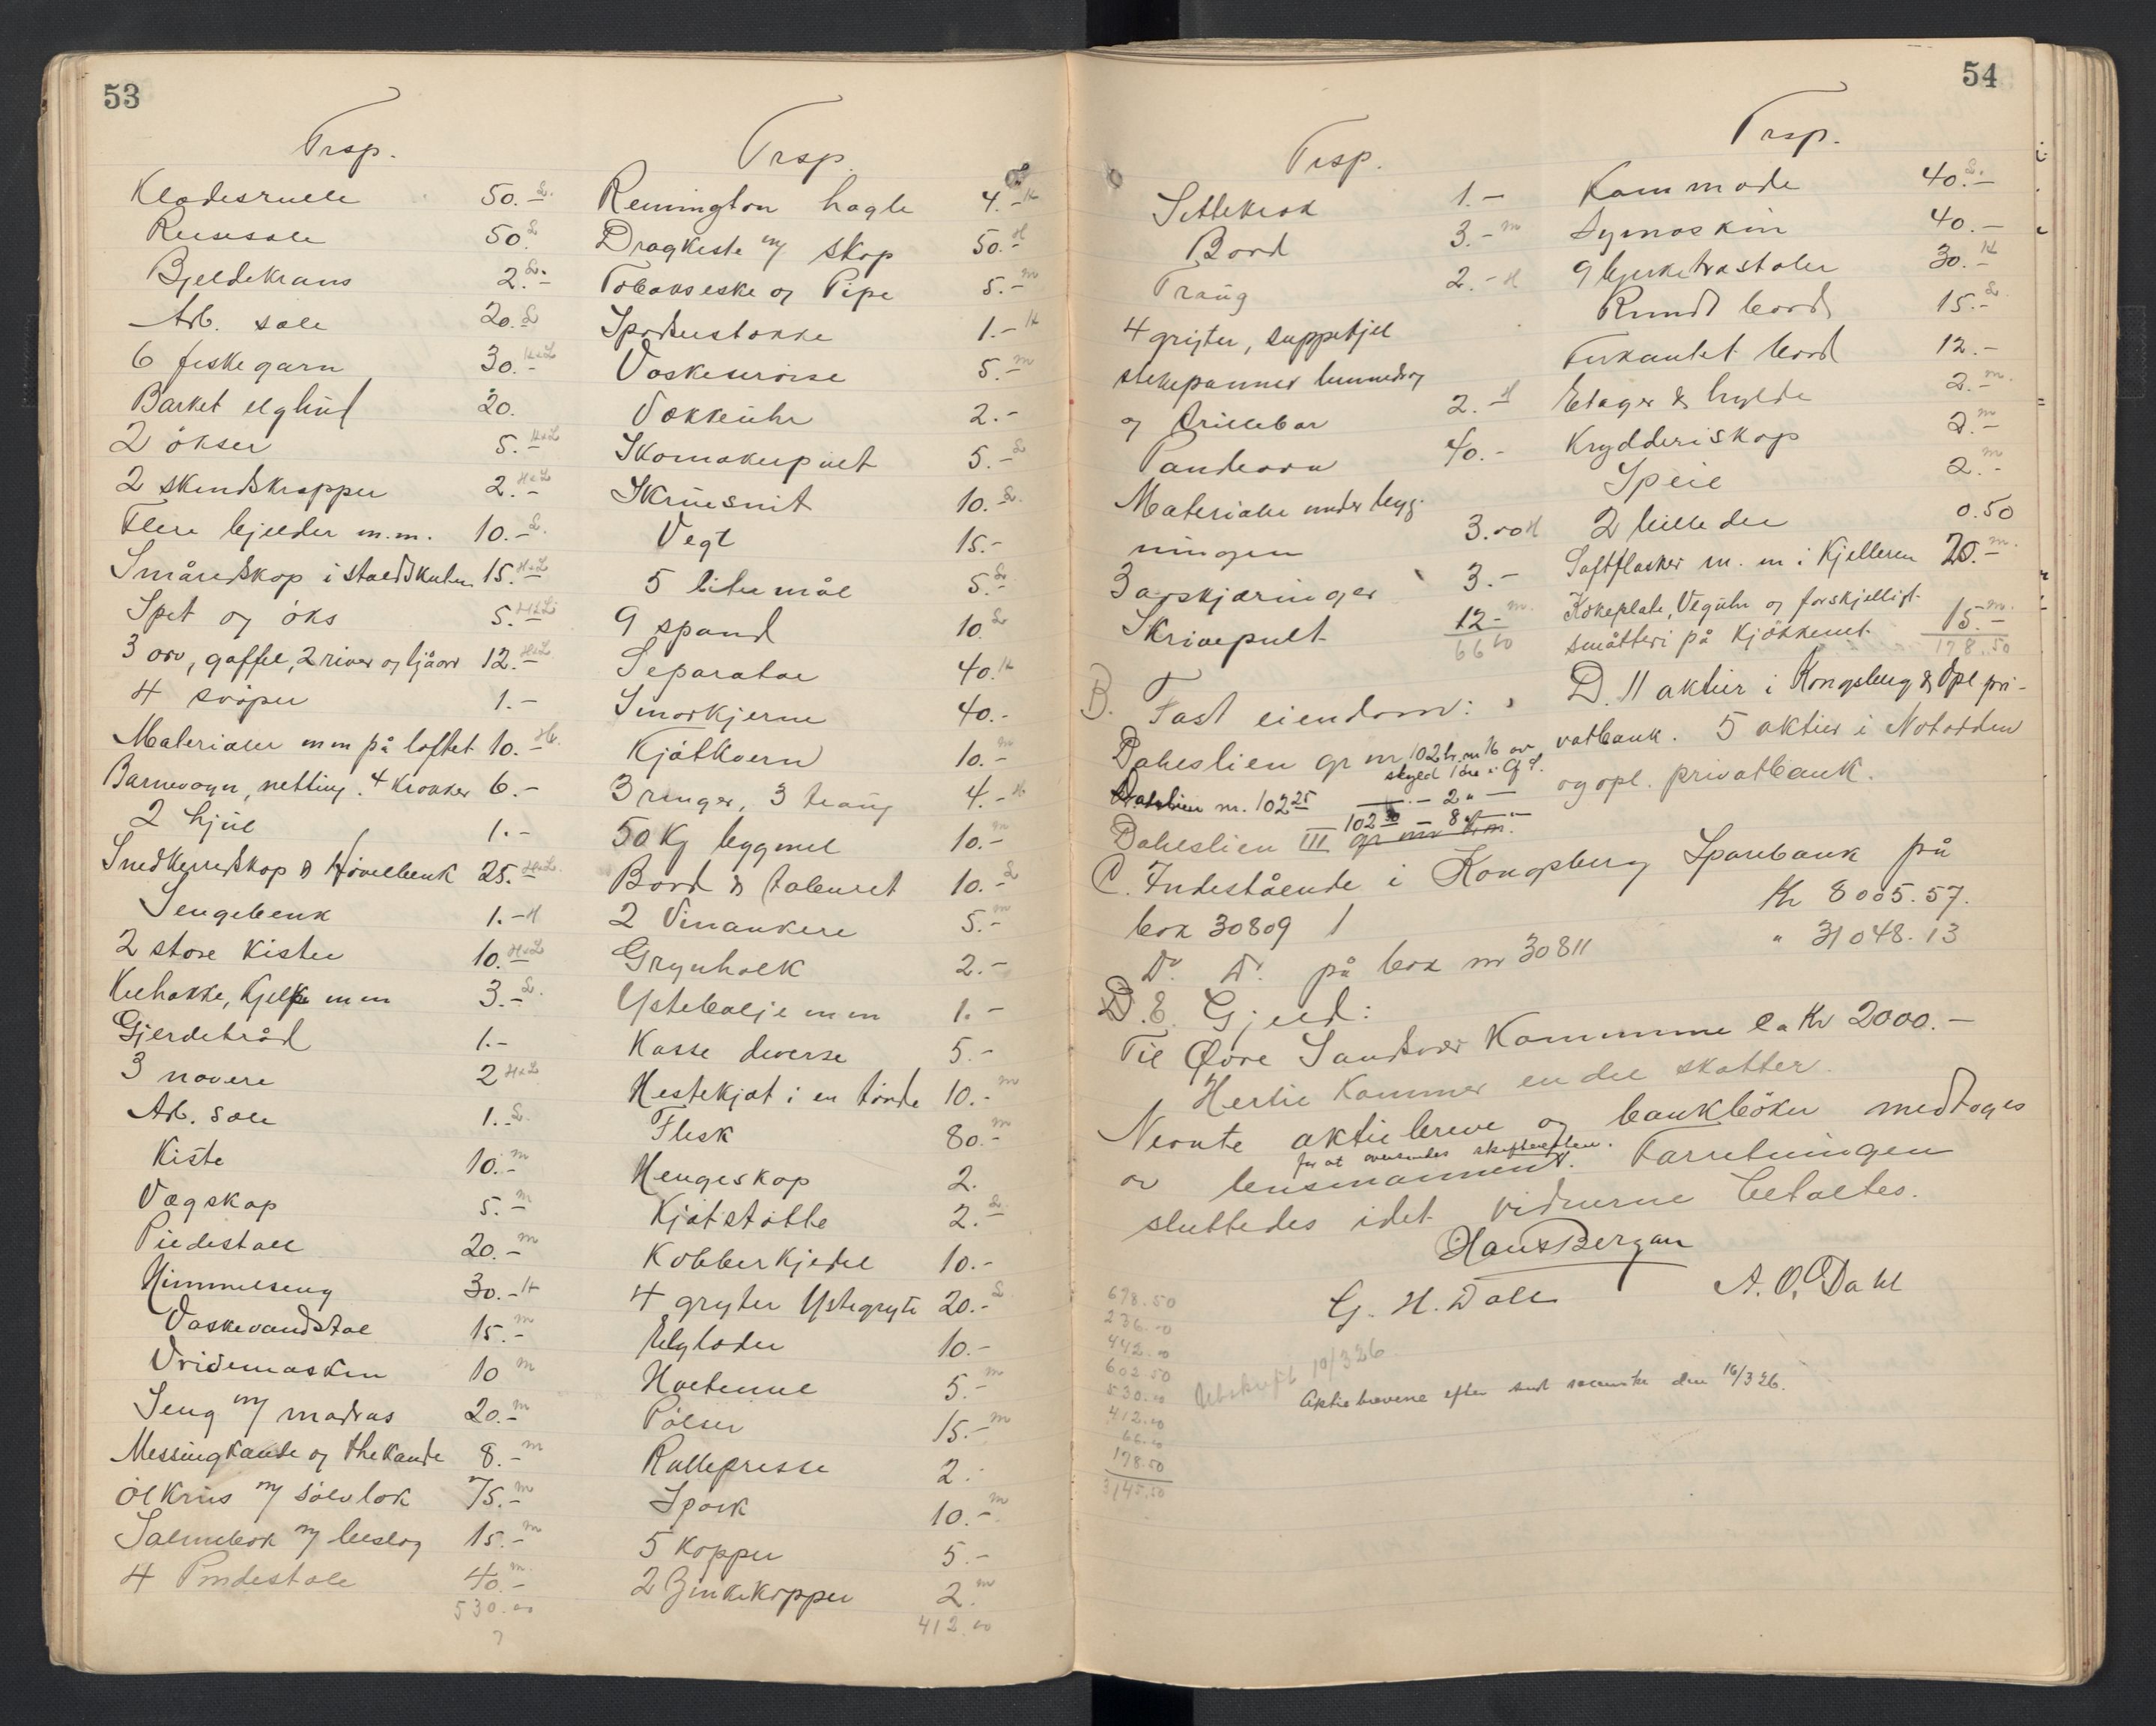 53
Trsp.
Kladesrulle 50.- L.
Reisesale 50. L
Bjeldekrans 2.- L.
Arb. sale 20. L
6 fiskegarn 30.- H&L
Barket elghud 20.
2 økser 5.- H&L
2 skindskrapper 2.- H&L
Flere bjelder m.m. 10.- L.
Småredskap i staldskuten 15.- H&L
Spet og øks 5.- H&L
3 orv, gaffel, 2 river og ljåorv 12.- H&L
4 svøper 1.-
Materialer m m på loftet 10.- H.
Barnevogn, netting, 4 kroker 6.-
2 hjul 1.-
Snedkerredskap & Høvelbenk 25.- H&L.
Sengebenk 1.- H
2 store kister 10.- H&L
Kulhakke, kjelke m m 3.- L.
Gjerdetråd 1.-
3 navere 2 H&L
Arb. sale 1.- L.
Kiste 10.- m
Vægskap 5.- m
Piedestall 20.- m
Himmelseng 30.- H
Vaskevandstol 15.- m
Vridemaskin 10 m
Seng m/ madras 20.- m
Messingkande og thekande 8.- m
Ølkrus m/ sølvlok 75.- m
Salmebok m/ beslag 15.- m
4 Pindestole 40.- m.
530.00
Trsp.
Remington hagle 4.- H
Dragkiste m/ skap 50.- H
Tobakseske og Pipe 5.- m
Spaserstokke 1.- H
Vaskeservise 5.- m
Vækkeuhr 2.-
Skomakerpult 5.- L
Skruesnit 10.- L.
Vegt 15.-
5 litermål 5.- L
9 spand 10. L
Separator 40. H
Smørkjerne 40.-
Kjøtkvern 10.- m
3 ringer, 3 traug 4.- H
50 kg byggmel 10.- m
Bord & taburet 10.- L
2 Vinankere 5.- m
Grynholk 2.-
Ystebalje m m 1.-
Kasse diverse 5.-
Hestekjøt i en tønde 10.- m
Flesk 80.- m
Hengeskap 2.
Kjøtstøtte 2.- L
Kobberkjedel 10.-
4 gryter Ystegryte 20.- L
10.-
Hvetemel 5.- m
Pølser 15.- m
Rullepresse 2.-
Spæk 10.- m
5 kopper 5.-
2 Zinkkopper 2. m
412.00
54
Trsp.
Sittekrak 1.-
Bord 3.- m
Traug 2.- H
4 gryter, suppekjel
stekepanner
og trillebør 2.- H
Panteovn 40.-
Materialer under byg-
ningen 3.00 H
3 avskjæringer 3.-
Skrivepult 12.- m.
66.00
Trsp.
Kommode 40.- L.
Symaskin 40.-
9 bjerketræstoler 30.- H
Rundt bord 15.- L
Firkantet bord 12.-
Etager & hylde 2.- m.
Krydderiskap 2.- m
Speil 2.- m
2 billeder 0.50
Saftflasker m. m i kjelleren 20.- m.
Kokeplate, Veguhr og forskjelligt
småtteri på kjøkkenet 15.- m.
178.50
B. Fast eiendom:
Daleslien gr nr 102 br. nr 16 av
skyld 1 øre
Daleslien nr. 102 25 —.— 2 " —
102 30 — 8 " —
Daleslien III gr nr
D. 11 aktier i Kongsberg & Opl pri-
vatbank. 5 aktier i Notodden
og opl. privatbank.
C. Indestående i Kongsberg Sparebank på
bok 30809 Kr 8005.57.
Do. Do. på bok nr 30811 " 31048.13
D.E. Gjeld:
Til Øvre Sandsvær Kommune ca Kr 2000.-
Hertil kommer en del skatter.
Nevnte aktiebreve og bankbøker medtoges
for at oversendes skifteretten.
av lensmannen. Forretningen
sluttedes idet vidnerne betaltes.
Hans Bergan
G. H. Dale A. O. Dahl
678.50
236.00
442.00
602.50
530.00
412.00
66.00
178.50
3145.50
Utskrift 10/3 26
Aktiebrevene efter sendt den 16/3 26.